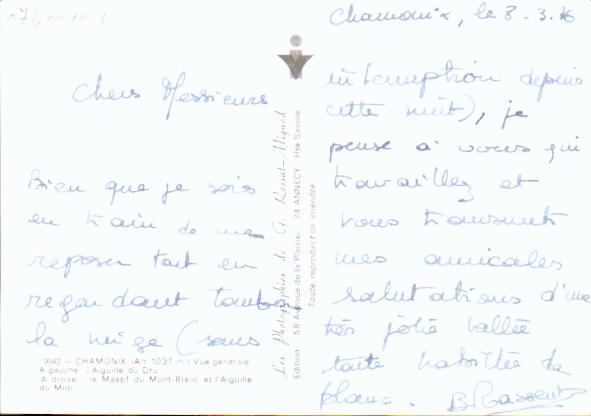 07400101
Chers Messieurs
Bien que je sois
en train de me
reposer tout en
regardant tomber
la neige (sans
9942 - CHAMONIX (Alt. 1037 m.) Vue générale
A gauche : l'Aiguille du Dru
A droite : le Massif du Mont-Blanc et l'Aiguille
du Midi
Les Photographies de G. Rossat-Mignod
Edition 5B Avenue de la Plaine 74 ANNECY - Hte Savoie
Toute reproduction interdite
Chamonix, le 8.3.76
interruption depuis
cette nuit), je
pense à vous qui
travaillez et
vous transmet
mes amicales
salutations d'une
très jolie vallée
toute habillée de
blanc.